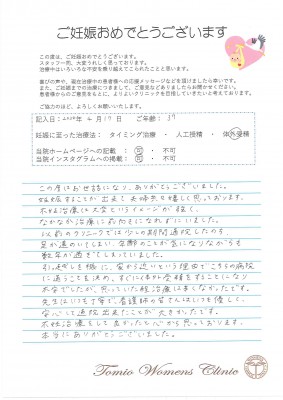 ご妊娠おめでとうございます
この度は、ご妊娠おめでとうございます。
スタッフ一同、大変うれしく思っております。
治療中はいろいろな不安を乗り越えてこられたことと思います。
喜びの声や、現在治療中の患者様への応援メッセージなどを頂けましたら幸いです。
また、ご妊娠までの治療につきまして、ご意見などありましたらお聞かせください。
患者様からのご意見をもとに、よりよいクリニックを目指していきたいと考えております。
ご協力のほど、よろしくお願いいたします。
記入日：2024年 2月17日 ご年齢：37
妊娠に至った治療法： タイミング治療 ・ 人工授精 ・ 体外受精
当院ホームページへの記載： 可 ・ 不可
当院インスタグラムへの掲載： 可 ・ 不可
この度はお世話になり、ありがとうございました。
妊娠することが出来て夫婦共々嬉しく思っております。
不妊治療は大変というイメージが強く、
なかなか治療に前向きになれずにいました。
以前のクリニックでは少しの期間通院したのち、
足が遠のいてしまい、年齢のことが気になりながらも
数年が過ぎてしまっていました。
引っ越しを機に、家から近いという理由でこちらの病院
に通うことを決め、すぐに体外受精をすることになり
不安でしたが、思っていた程治療は辛くなかったです。
先生はいつも丁寧で、看護師の皆さんはいつも優しく、
安心して通院出来たことが大きかったです。
不妊治療をして良かったと心から思っております。
本当にありがとうございました。
Tomio Womens Clinic